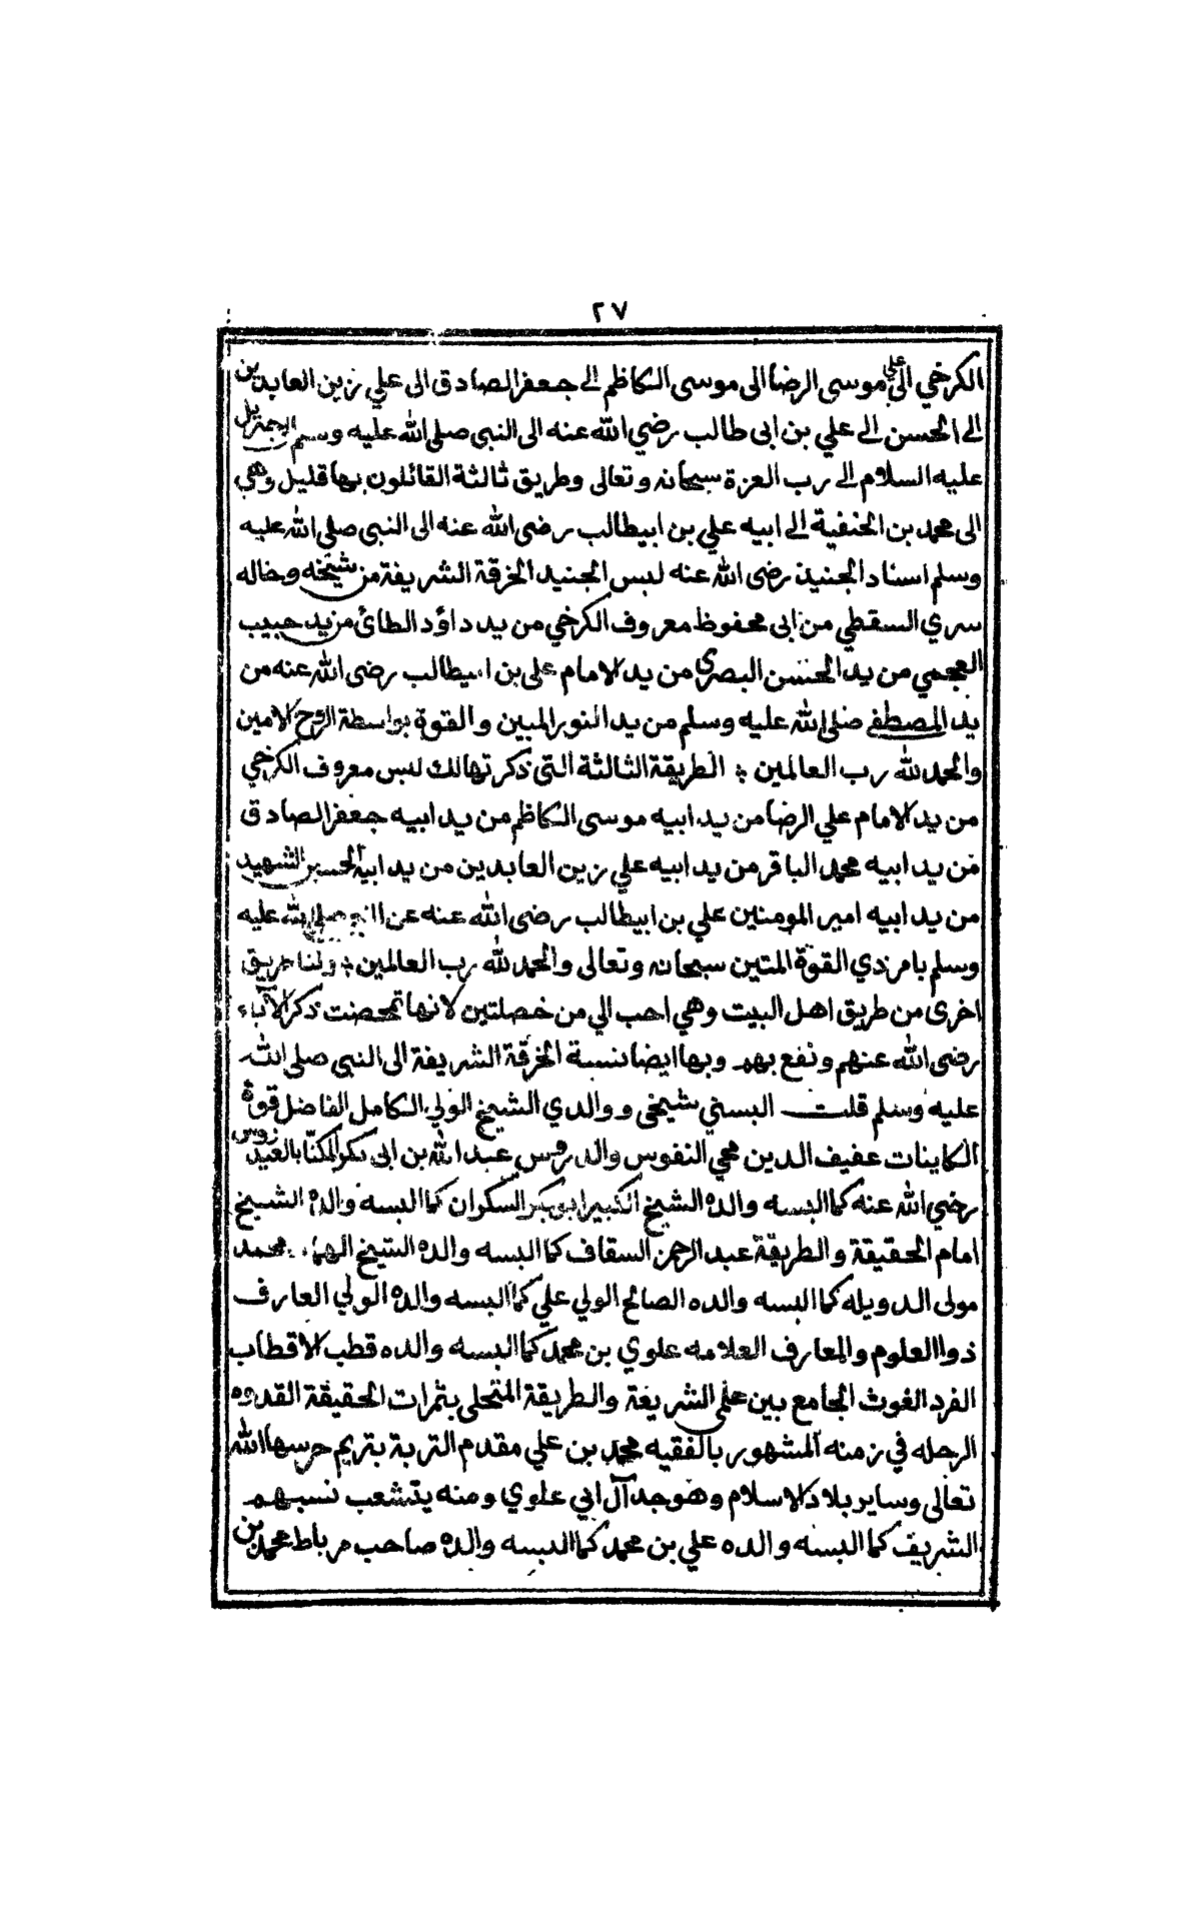 ٢٧
الكرخي الى علي موسى الرضا الى موسى الكاظم الى جعفر الصادق الى علي زين العابدين
الى الحسن الى علي بن ابى طالب رضي الله عنه الى النبى صلى الله عليه وسلم الى جبريل
عليه السلام الى رب العزة سبحانه وتعالى وطريق ثالثة القائلون بها قليل وهي
الى محمد بن الحنفية الى ابيه علي بن ابيطالب رضى الله عنه الى النبى صلى الله عليه
وسلم اسناد الجنيد رضى الله عنه لبس الجنيد الخرقة الشريفة من شيخه وخاله
سري السقطي من ابى محفوظ معروف الكرخي من يد داؤد الطائ من يد حبيب
العجمي من يد الحسن البصرى من يد الامام علي بن ابيطالب رضى الله عنه من
يد المصطفى صلى الله عليه وسلم من يد النور المبين والقوة بواسطة الروح الامين
والحمد لله رب العالمين ؛ الطريقة الثالثة التى ذكرتها لك لبس معروف الكرخي
من يد الامام علي الرضا من يد ابيه موسى الكاظم من يد ابيه جعفر الصادق
من يد ابيه محمد الباقر من يد ابيه علي زين العابدين من يد ابيه الحسين الشهيد
من يد ابيه امير المومنين علي بن ابيطالب رضى الله عنه عن النبي صلى الله عليه
وسلم بامر ذي القوة المتين سبحانه وتعالى والحمد لله رب العالمين ؛ ولنا طريق
اخرى من طريق اهل البيت وهي احب الي من خصلتين لانها تمحضت ذكر الآباء
رضى الله عنهم ونفع بهم وبها ايضا نسبة الخرقة الشريفة الى النبى صلى الله
عليه وسلم قلت البسني شيخى ووالدي الشيخ الولي الكامل الفاضل قوة
الكاينات عفيف الدين محي النفوس والدروس عبد الله بن ابى بكر المكنا بالعيدروس
رضي الله عنه كما البسه والده الشيخ الكبير ابو بكر السكران كما البسه والده الشيخ
امام الحقيقة والطريقة عبد الرحمن السقاف كما البسه والده الشيخ محمد
مولى الدويله كما البسه والده الصالح الولي علي كما البسه والده الولي العارف
ذو العلوم والمعارف العلامه علوي بن محمد كما البسه والده قطب الاقطاب
الفرد الغوث الجامع بين علمى الشريعة والطريقة المتحلى بثمرات الحقيقة القدوه
الرحله في زمنه المشهور بالفقيه محمد بن علي مقدم التربة بتريم حرسها الله
تعالى وساير بلاد الاسلام وهو جد آل ابي علوي ومنه يتشعب نسبهم
الشريف كما البسه والده علي بن محمد كما البسه والده صاحب مرباط محمد بن